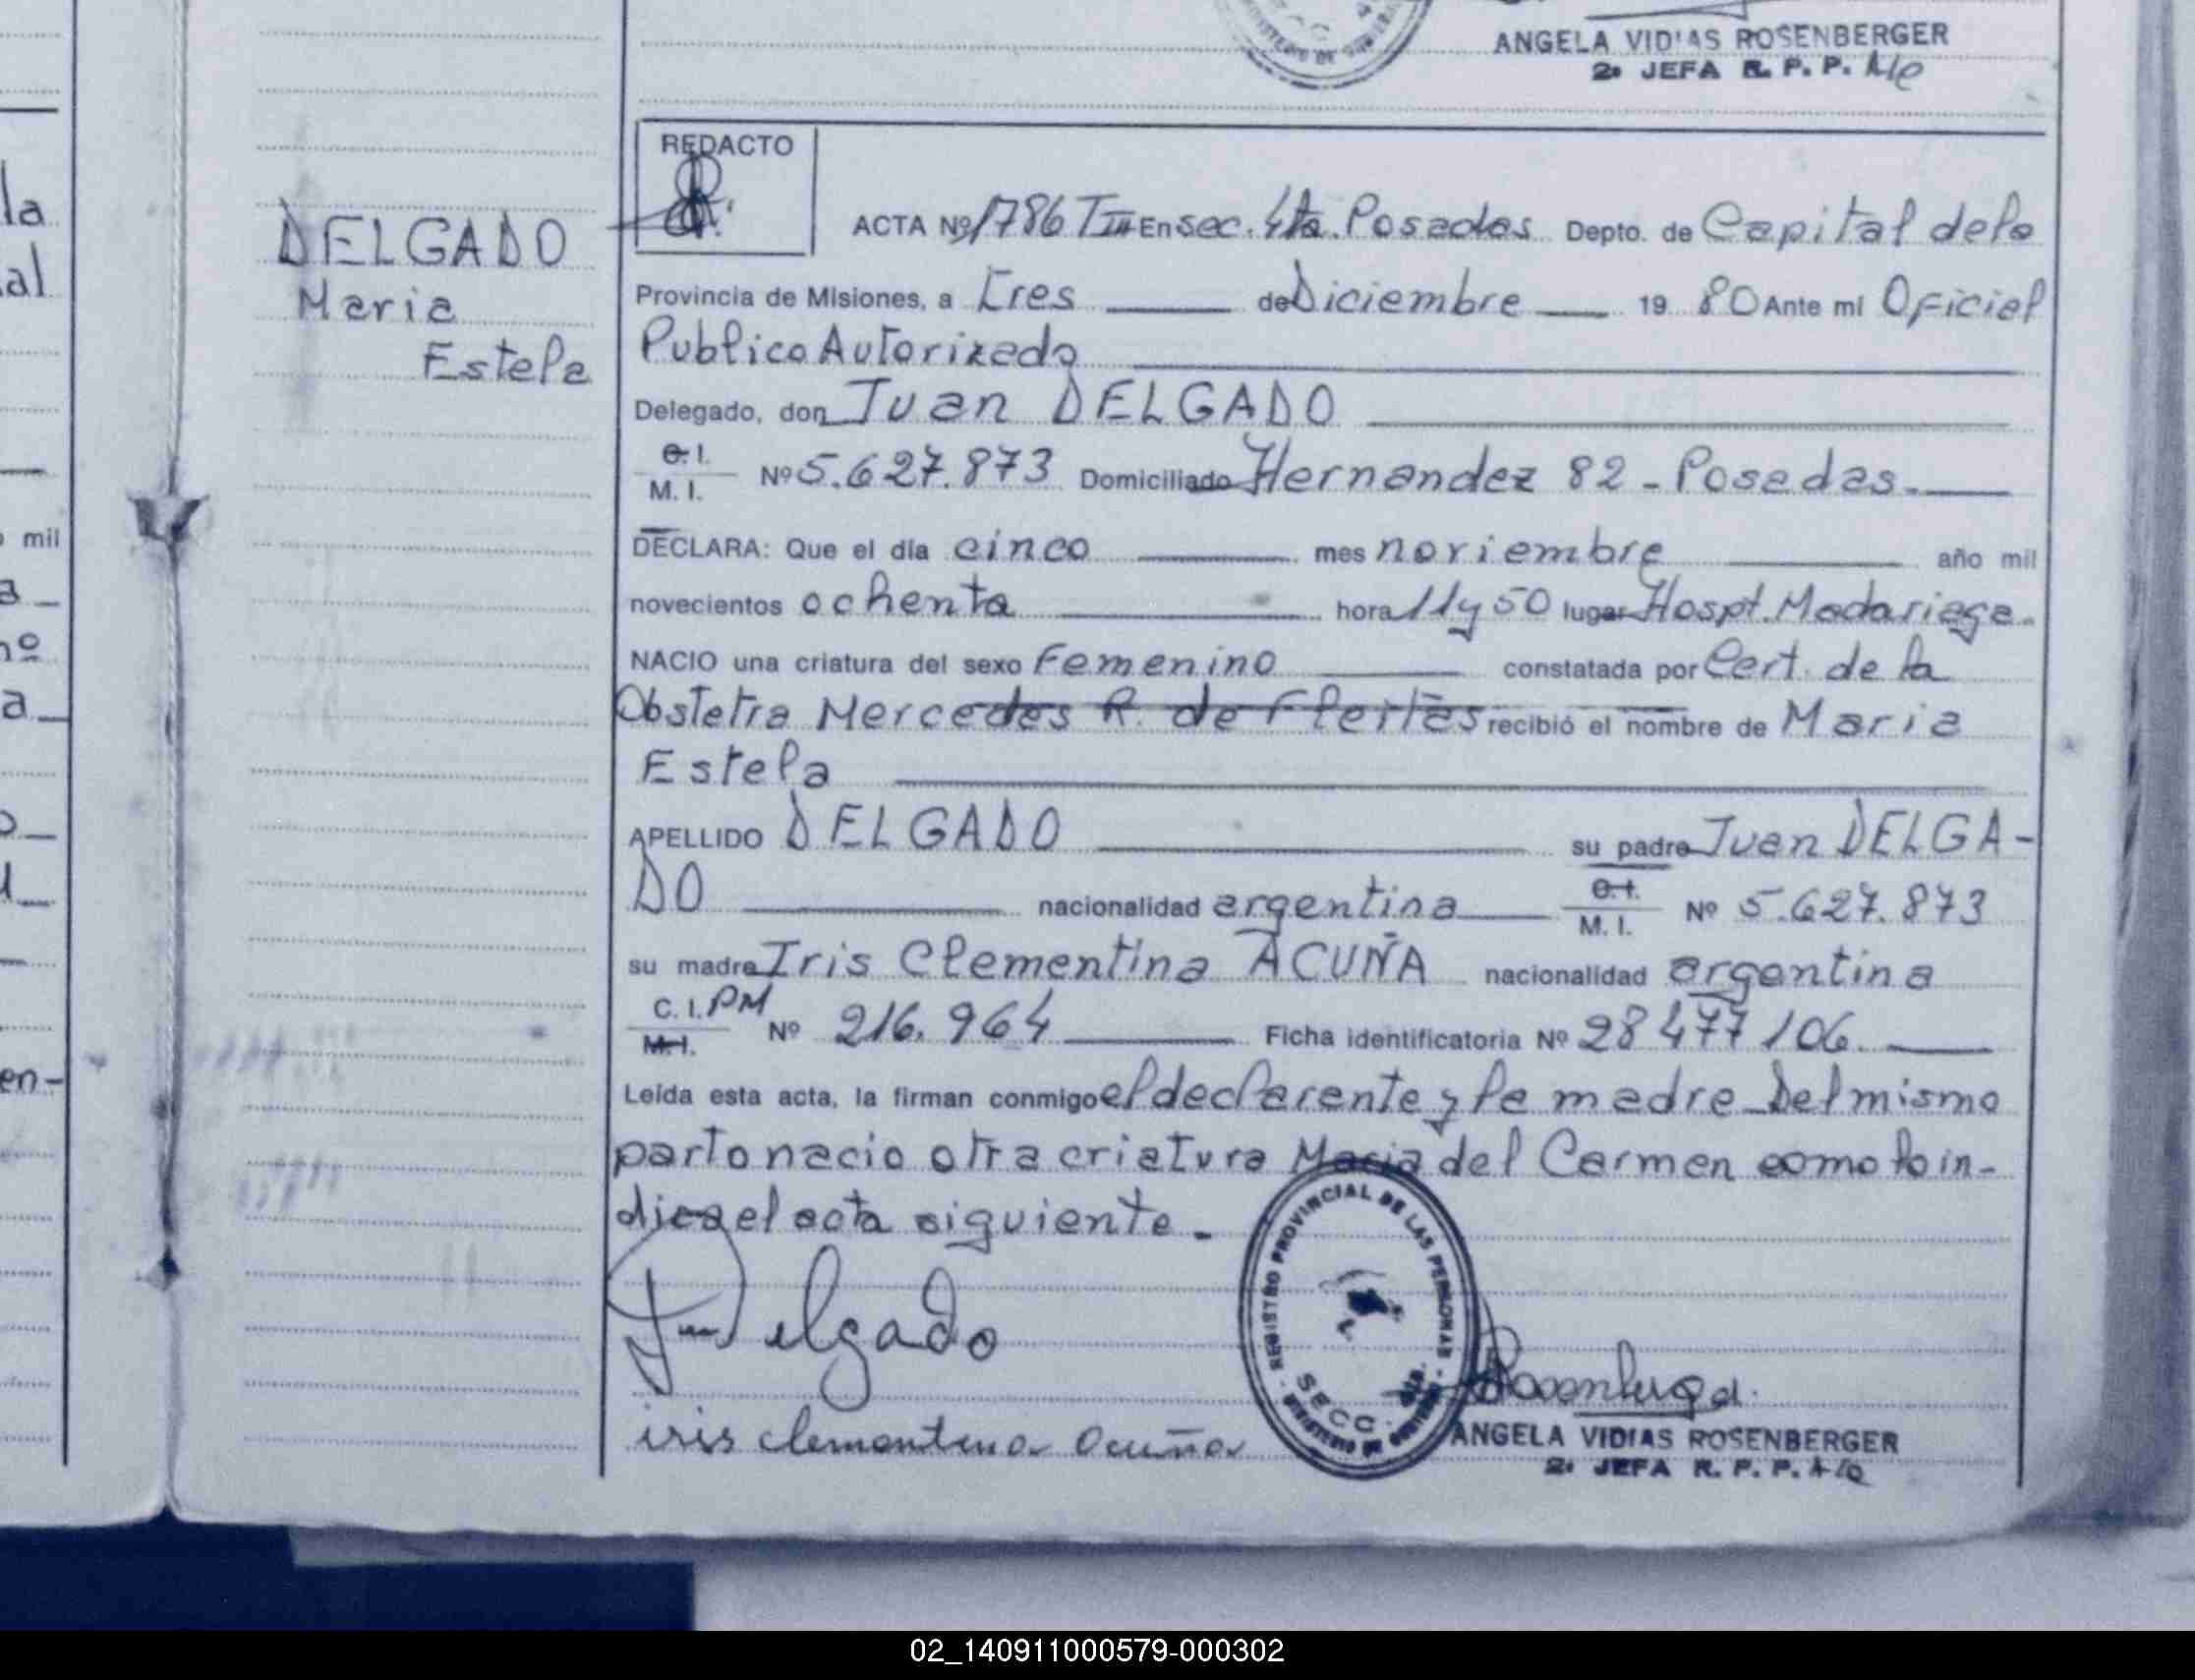 ANGELA VIDIAS ROSENBERGER
2a JEFA R. P. P.
la
al
mil
a
nº
a
en-
DELGADO
Maria
Estela
REDACTO
ACTA Nº 1786 T III En sec. 4ta. Posadas Depto. de Capital de la
Provincia de Misiones, a tres de Diciembre 19 80 Ante mi Oficial
Publico Autorizado
Delegado, don Juan DELGADO
C. I.
M. I. Nº 5.627.873 Domiciliado Hernandez 82 - Posadas.
DECLARA: Que el día cinco mes noviembre año mil
novecientos ochenta hora 11 y 50 lugar Hospt. Madariaga.
NACIO una criatura del sexo Femenino constatada por Cert. de la
Obstetra Mercedes R. de Fleitas recibió el nombre de Maria
Estela
APELLIDO DELGADO su padre Juan DELGA-
DO nacionalidad argentina C. I. M. I. Nº 5.627.873
su madre Iris Clementina ACUÑA nacionalidad argentina
C. I. PM
M. I. Nº 216.964 Ficha identificatoria Nº 28477106.
Leída esta acta, la firman conmigo el declarente y la madre Del mismo
parto nacio otra criatura Maria del Carmen como lo in-
dica el acta siguiente.-
Delgado
REGISTRO PROVINCIAL DE LAS PERSONAS
SECC.
Rosenberger
iris clementina acuña
ANGELA VIDIAS ROSENBERGER
2a JEFA R. P. P.
02_140911000579-000302